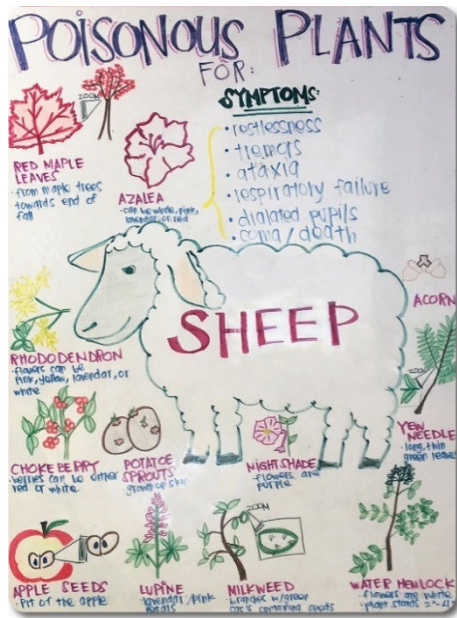 POISONOUS PLANTS
FOR:
SYMPTOMS:
• restlessness
• tremors
• ataxia
• respiratory failure
• dialated pupils
• coma / death
ZOOM
RED MAPLE
LEAVES
• from maple trees
towards end of
fall
AZALEA
• can be white, pink,
lavendar, or red
SHEEP
ACORN
RHODODENDRON
• flowers can be
pink, yellow, lavendar, or
white
ZOOM
YEW
NEEDLE
• long, thin
green leaves
CHOKEBERRY
• berries can be either
red or white
POTATOE
SPROUTS
NIGHTSHADE
• flowers are
purple
ZOOM
APPLE SEEDS
• pit of the apple
LUPINE
• lavendar/pink
petals
MILKWEED
• branches w/green
containing seeds
WATER HEMLOCK
• flowers are white
• plant stands